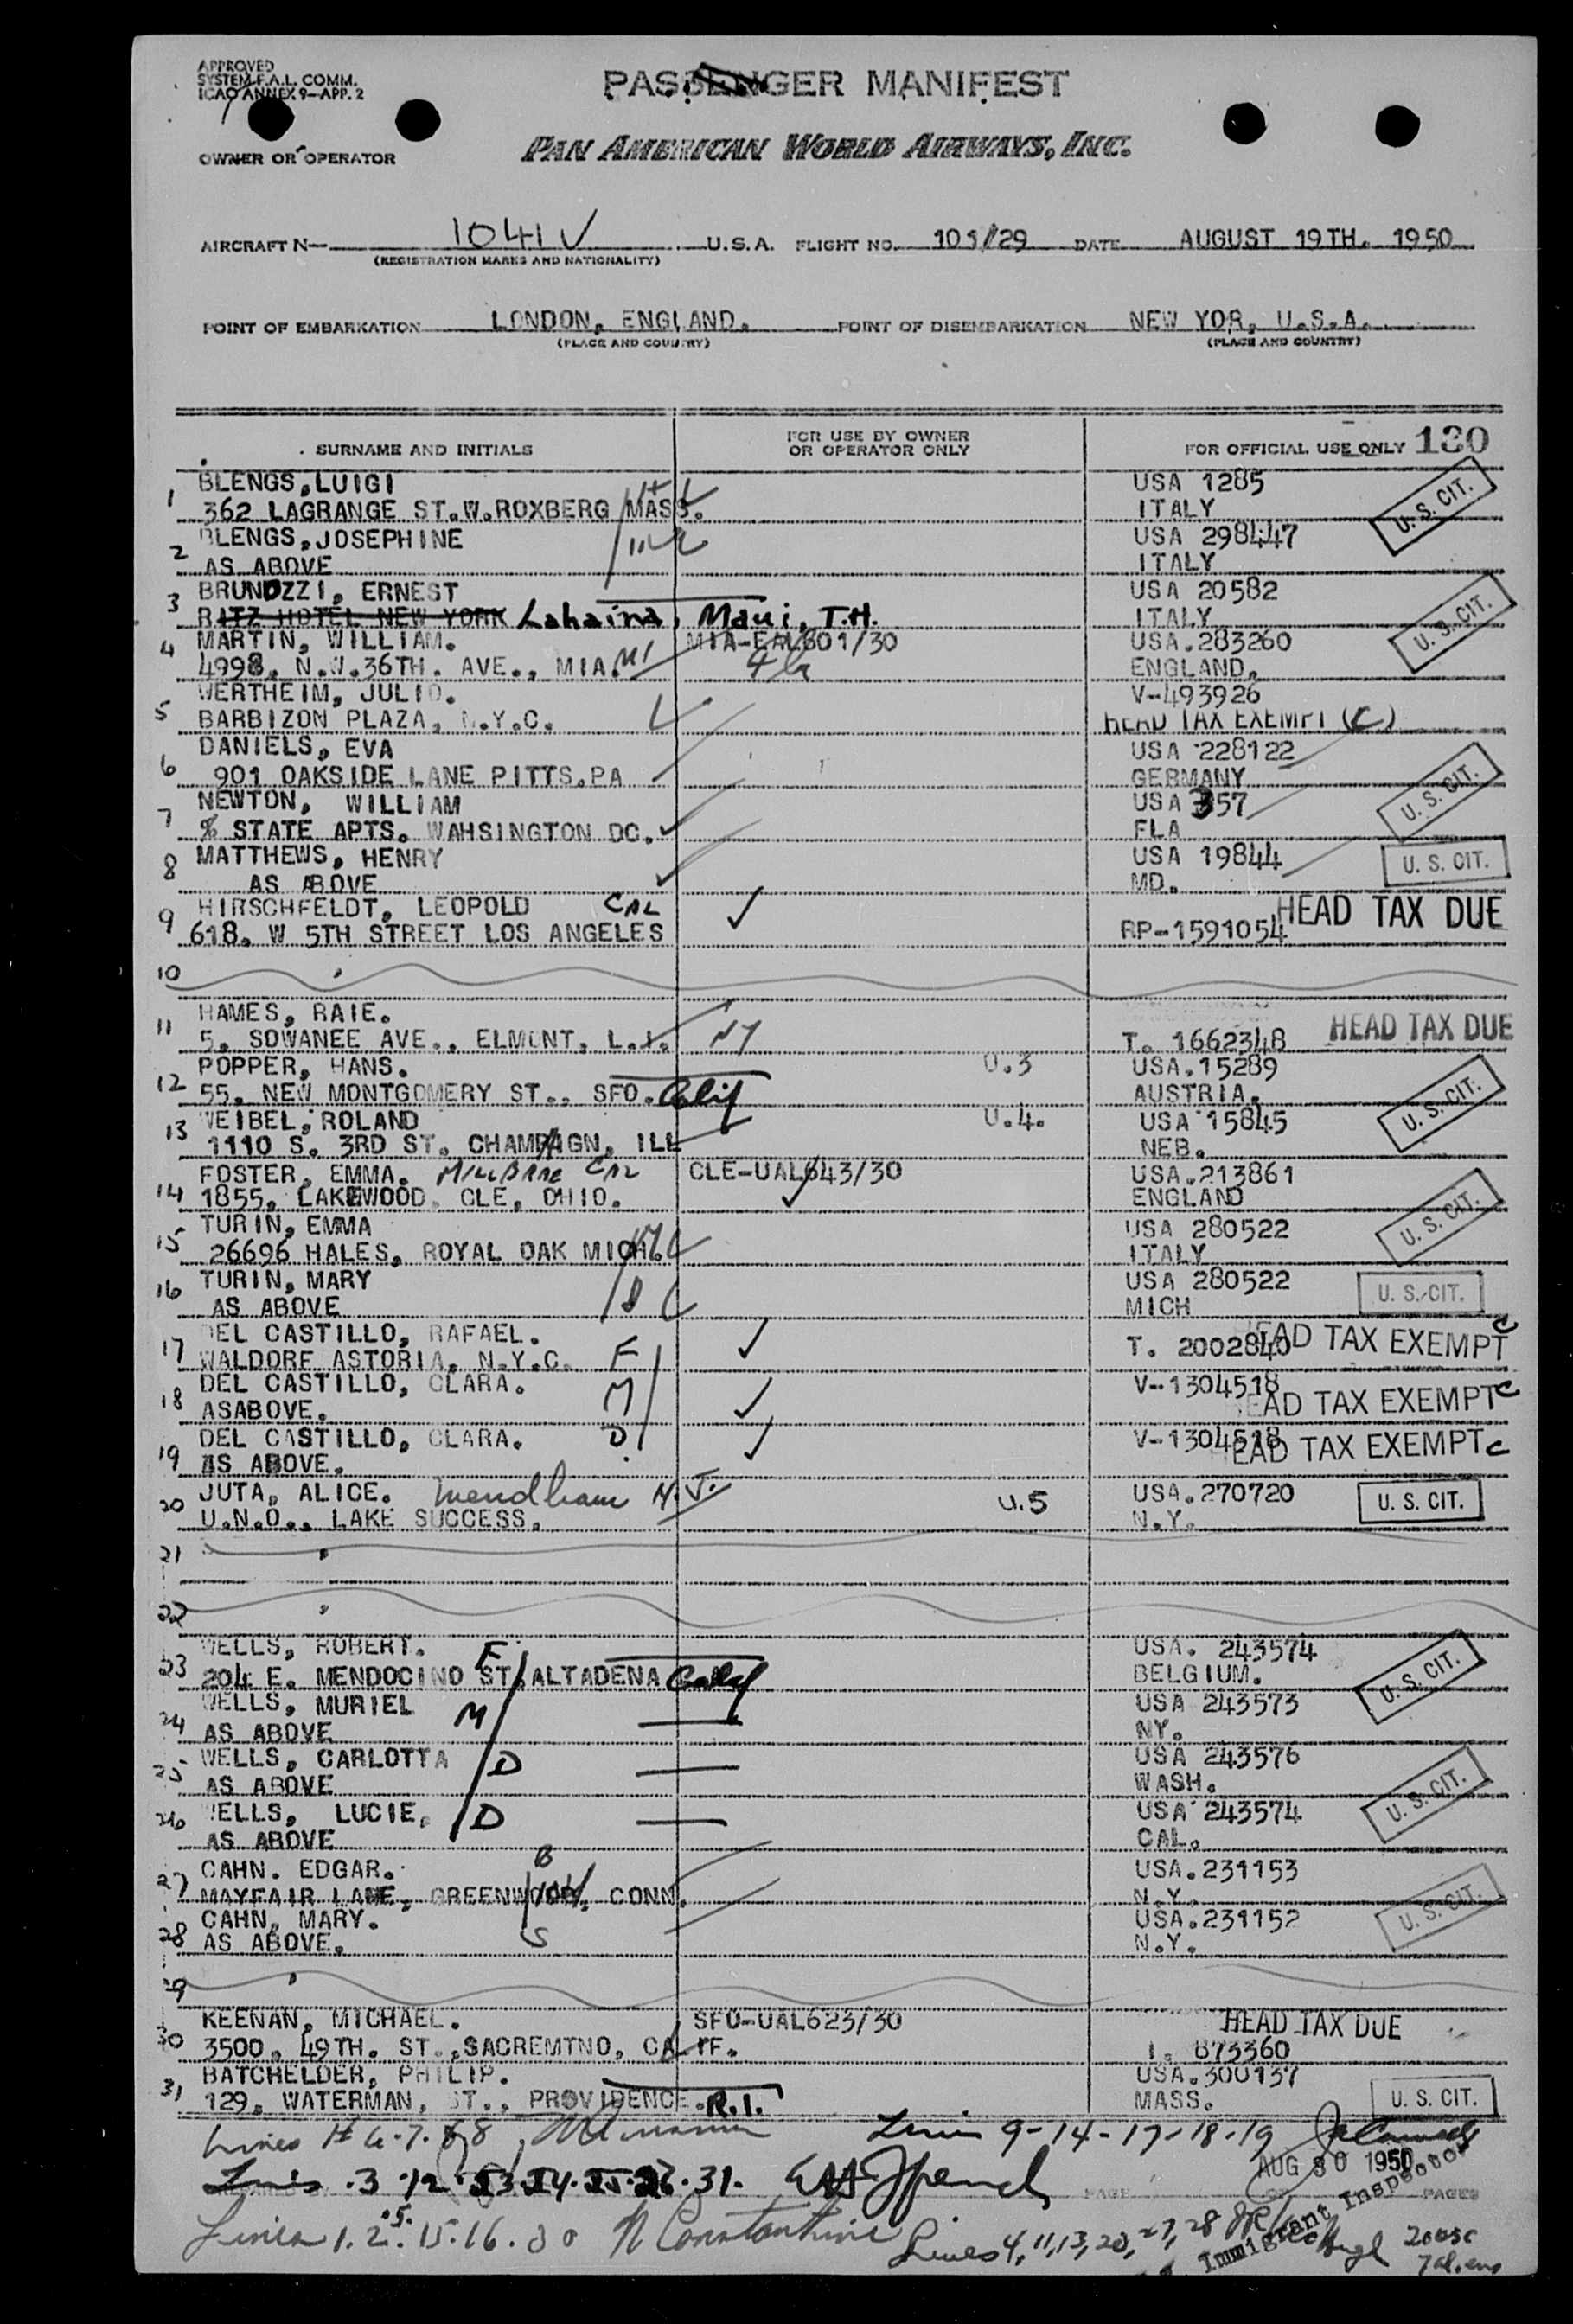 APPROVED
SYSTEM F.A.L. COMM.
ICAO ANNEX 9—APP. 2
PASSENGER MANIFEST
OWNER OR OPERATOR
PAN AMERICAN WORLD AIRWAYS, INC.
AIRCRAFT N— 1041V U.S.A. FLIGHT NO. 101/29 DATE AUGUST 19TH. 1950
(REGISTRATION MARKS AND NATIONALITY)
POINT OF EMBARKATION LONDON, ENGLAND. POINT OF DISEMBARKATION NEW YOR, U.S.A.
(PLACE AND COUNTRY) (PLACE AND COUNTRY)
SURNAME AND INITIALS FOR USE BY OWNER OR OPERATOR ONLY FOR OFFICIAL USE ONLY 130
1 BLENGS, LUIGI USA 1285
362 LAGRANGE ST.W.ROXBERG MASS. ITALY U. S. CIT.
2 BLENGS, JOSEPHINE USA 298447
AS ABOVE ITALY
3 BRUNOZZI, ERNEST USA 20582
RITZ HOTEL NEW YORK Lahaina, Maui, T.H. ITALY U. S. CIT.
4 MARTIN, WILLIAM. MIA-EAL601/30 USA.283260
4998, N.W.36TH. AVE., MIAMI Fla ENGLAND.
5 WERTHEIM, JULIO. V-493926
BARBIZON PLAZA, N.Y.C. HEAD TAX EXEMPT (C)
6 DANIELS, EVA USA 228122
901 OAKSIDE LANE PITTS.PA GERMANY U. S. CIT.
7 NEWTON, WILLIAM USA 357
% STATE APTS. WAHSINGTON DC. FLA
8 MATTHEWS, HENRY USA 19844 U. S. CIT.
AS ABOVE MD.
9 HIRSCHFELDT, LEOPOLD CAL HEAD TAX DUE
618. W 5TH STREET LOS ANGELES RP-1591054
10
11 HAMES, RAIE.
5. SOWANEE AVE., ELMONT, L.I. NY T. 1662348 HEAD TAX DUE
12 POPPER, HANS. U.3 USA.15289
55. NEW MONTGOMERY ST., SFO. Calif AUSTRIA. U. S. CIT.
13 WEIBEL, ROLAND U.4. USA 15845
1110 S. 3RD ST. CHAMPAIGN, ILL NEB.
14 FOSTER, EMMA. MILLBRAE CAL CLE-UAL643/30 USA.213861
1855, LAKEWOOD. CLE, OHIO. ENGLAND U. S. CIT.
15 TURIN, EMMA USA 280522
26696 HALES, ROYAL OAK MICH. ITALY
16 TURIN, MARY USA 280522 U. S. CIT.
AS ABOVE MICH
17 DEL CASTILLO, RAFAEL. T. 2002840 HEAD TAX EXEMPT C
WALDORF ASTORIA, N.Y.C. F
18 DEL CASTILLO, CLARA. M V-1304518
ASABOVE. HEAD TAX EXEMPT C
19 DEL CASTILLO, CLARA. D V-1304518
AS ABOVE. HEAD TAX EXEMPT C
20 JUTA, ALICE. Mendham N.J. U.5 USA.270720 U. S. CIT.
U.N.O., LAKE SUCCESS. N.Y.
21
22
23 WELLS, ROBERT. F USA. 243574
204 E. MENDOCINO ST. ALTADENA Calif BELGIUM. U. S. CIT.
24 WELLS, MURIEL M USA 243573
AS ABOVE NY.
25 WELLS, CARLOTTA D USA 243576
AS ABOVE WASH. U. S. CIT.
26 WELLS, LUCIE, D USA 243574
AS ABOVE CAL.
27 CAHN. EDGAR. B USA.231153
MAYFAIR LANE, GREENWOOD, CONN. N.Y. U. S. CIT.
28 CAHN, MARY. S USA.231152
AS ABOVE. N.Y.
29
30 KEENAN, MICHAEL. SFO-UAL623/30 HEAD TAX DUE
3500, 49TH. ST., SACREMTNO, CALIF. I. 673360
31 BATCHELDER, PHILIP. USA.300137
129, WATERMAN, ST., PROVIDENCE. R.I. MASS. U. S. CIT.
Lines # 6-7-8 Lines 9-14-17-18-19
Lines 3.12.23.24.25.26.31. AUG 30 1950
PAGE PAGES
Lines 1.2.5.15.16.30 N Constantine Lines 4, 11, 13, 20, 27, 28 Immigrant Inspector
20 USC
7 aliens